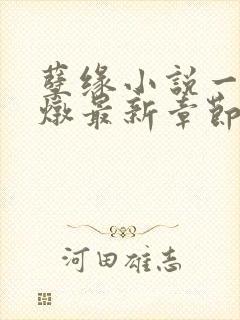 孽缘小説一
燉最新章節
河田雄志